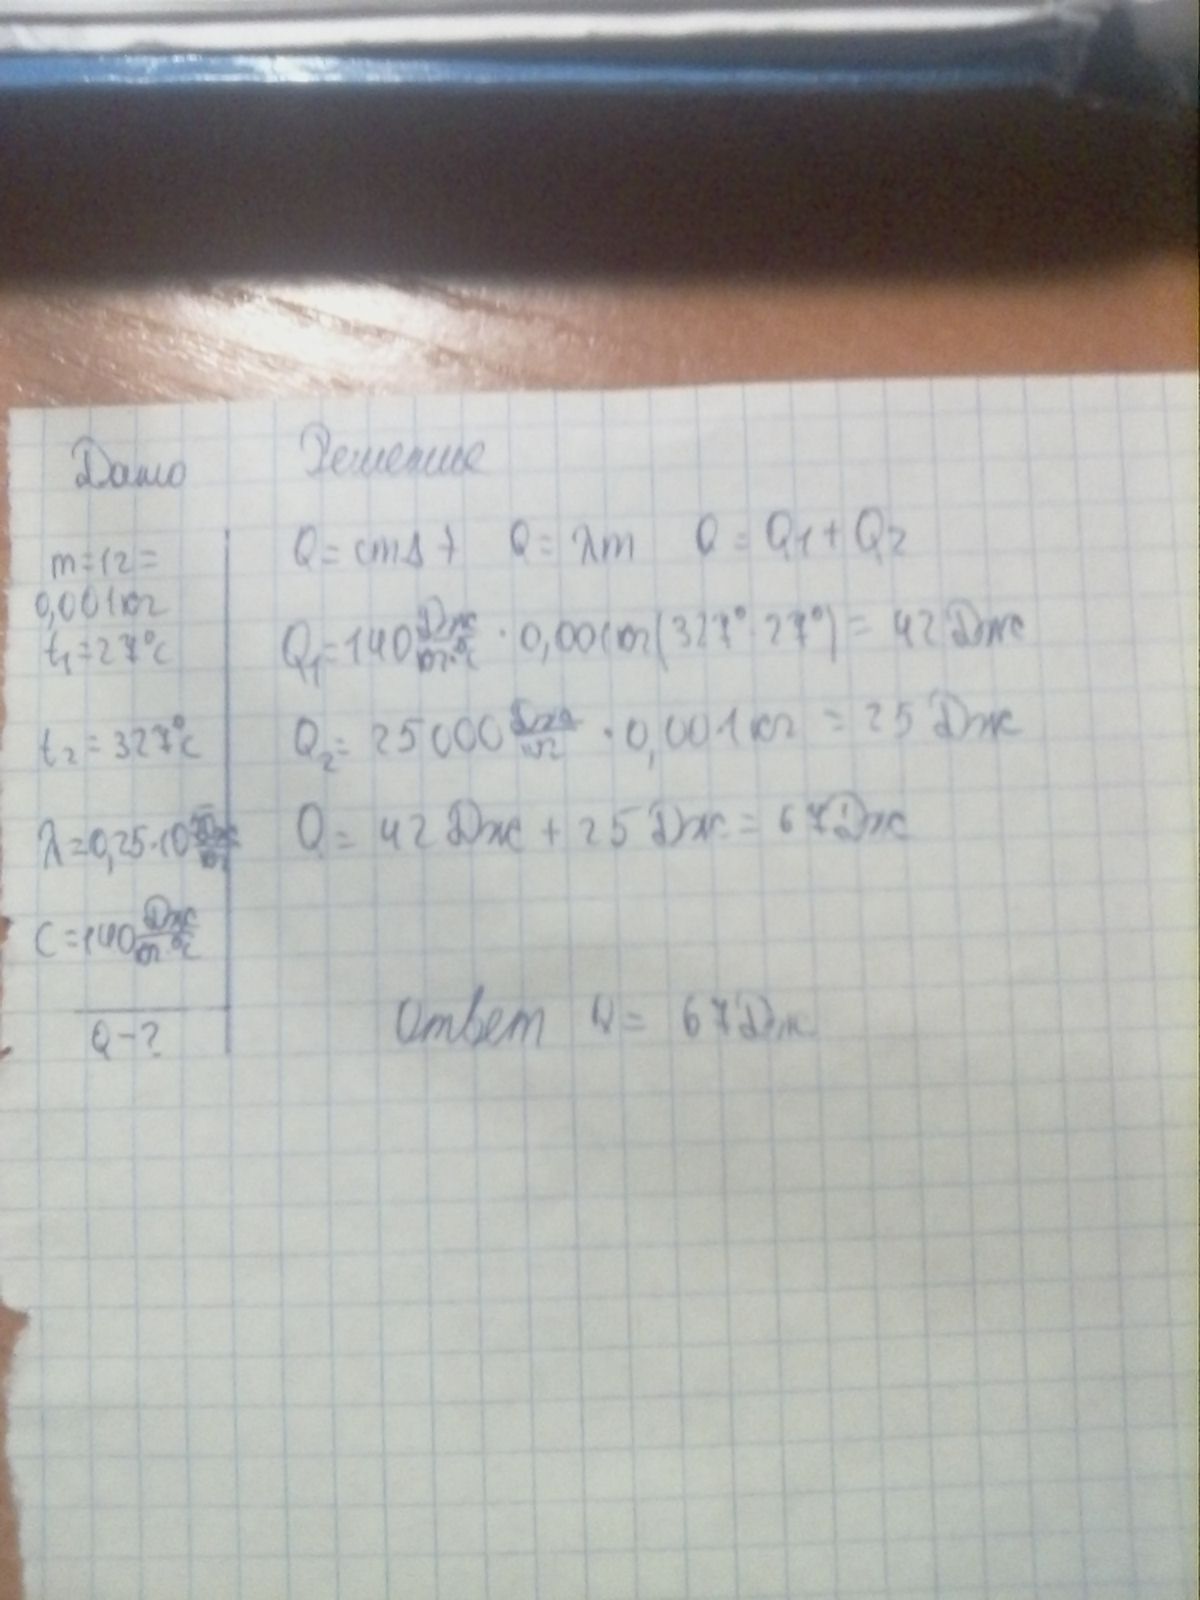 Дано
m=1г=
0,001кг
t₁=27°c
t₂=327°c
λ=0,25·10⁵ Дж/кг
C=140 Дж/кг·°c
Q-?
Решение
Q=cmΔt Q=λm Q=Q₁+Q₂
Q₁=140 Дж/кг·°c · 0,001кг(327°-27°)=42Дж
Q₂=25000 Дж/кг · 0,001кг = 25 Дж
Q= 42 Дж + 25 Дж = 67Дж
Ответ Q= 67Дж